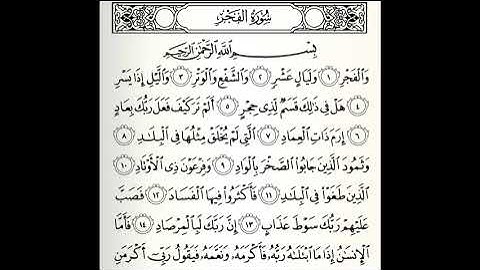 سُورَةُ الفَجْرِ
بِسْمِ اللَّهِ الرَّحْمَٰنِ الرَّحِيمِ
وَالْفَجْرِ ١ وَلَيَالٍ عَشْرٍ ٢ وَالشَّفْعِ وَالْوَتْرِ ٣ وَاللَّيْلِ إِذَا يَسْرِ
٤ هَلْ فِي ذَٰلِكَ قَسَمٌ لِذِي حِجْرٍ ٥ أَلَمْ تَرَ كَيْفَ فَعَلَ رَبُّكَ بِعَادٍ
٦ إِرَمَ ذَاتِ الْعِمَادِ ٧ الَّتِي لَمْ يُخْلَقْ مِثْلُهَا فِي الْبِلَادِ ٨
وَثَمُودَ الَّذِينَ جَابُوا الصَّخْرَ بِالْوَادِ ٩ وَفِرْعَوْنَ ذِي الْأَوْتَادِ ١٠
الَّذِينَ طَغَوْا فِي الْبِلَادِ ١١ فَأَكْثَرُوا فِيهَا الْفَسَادَ ١٢ فَصَبَّ
عَلَيْهِمْ رَبُّكَ سَوْطَ عَذَابٍ ١٣ إِنَّ رَبَّكَ لَبِالْمِرْصَادِ ١٤ فَأَمَّا
الْإِنسَٰنُ إِذَا مَا ابْتَلَىٰهُ رَبُّهُ فَأَكْرَمَهُ وَنَعَّمَهُ فَيَقُولُ رَبِّي أَكْرَمَنِ